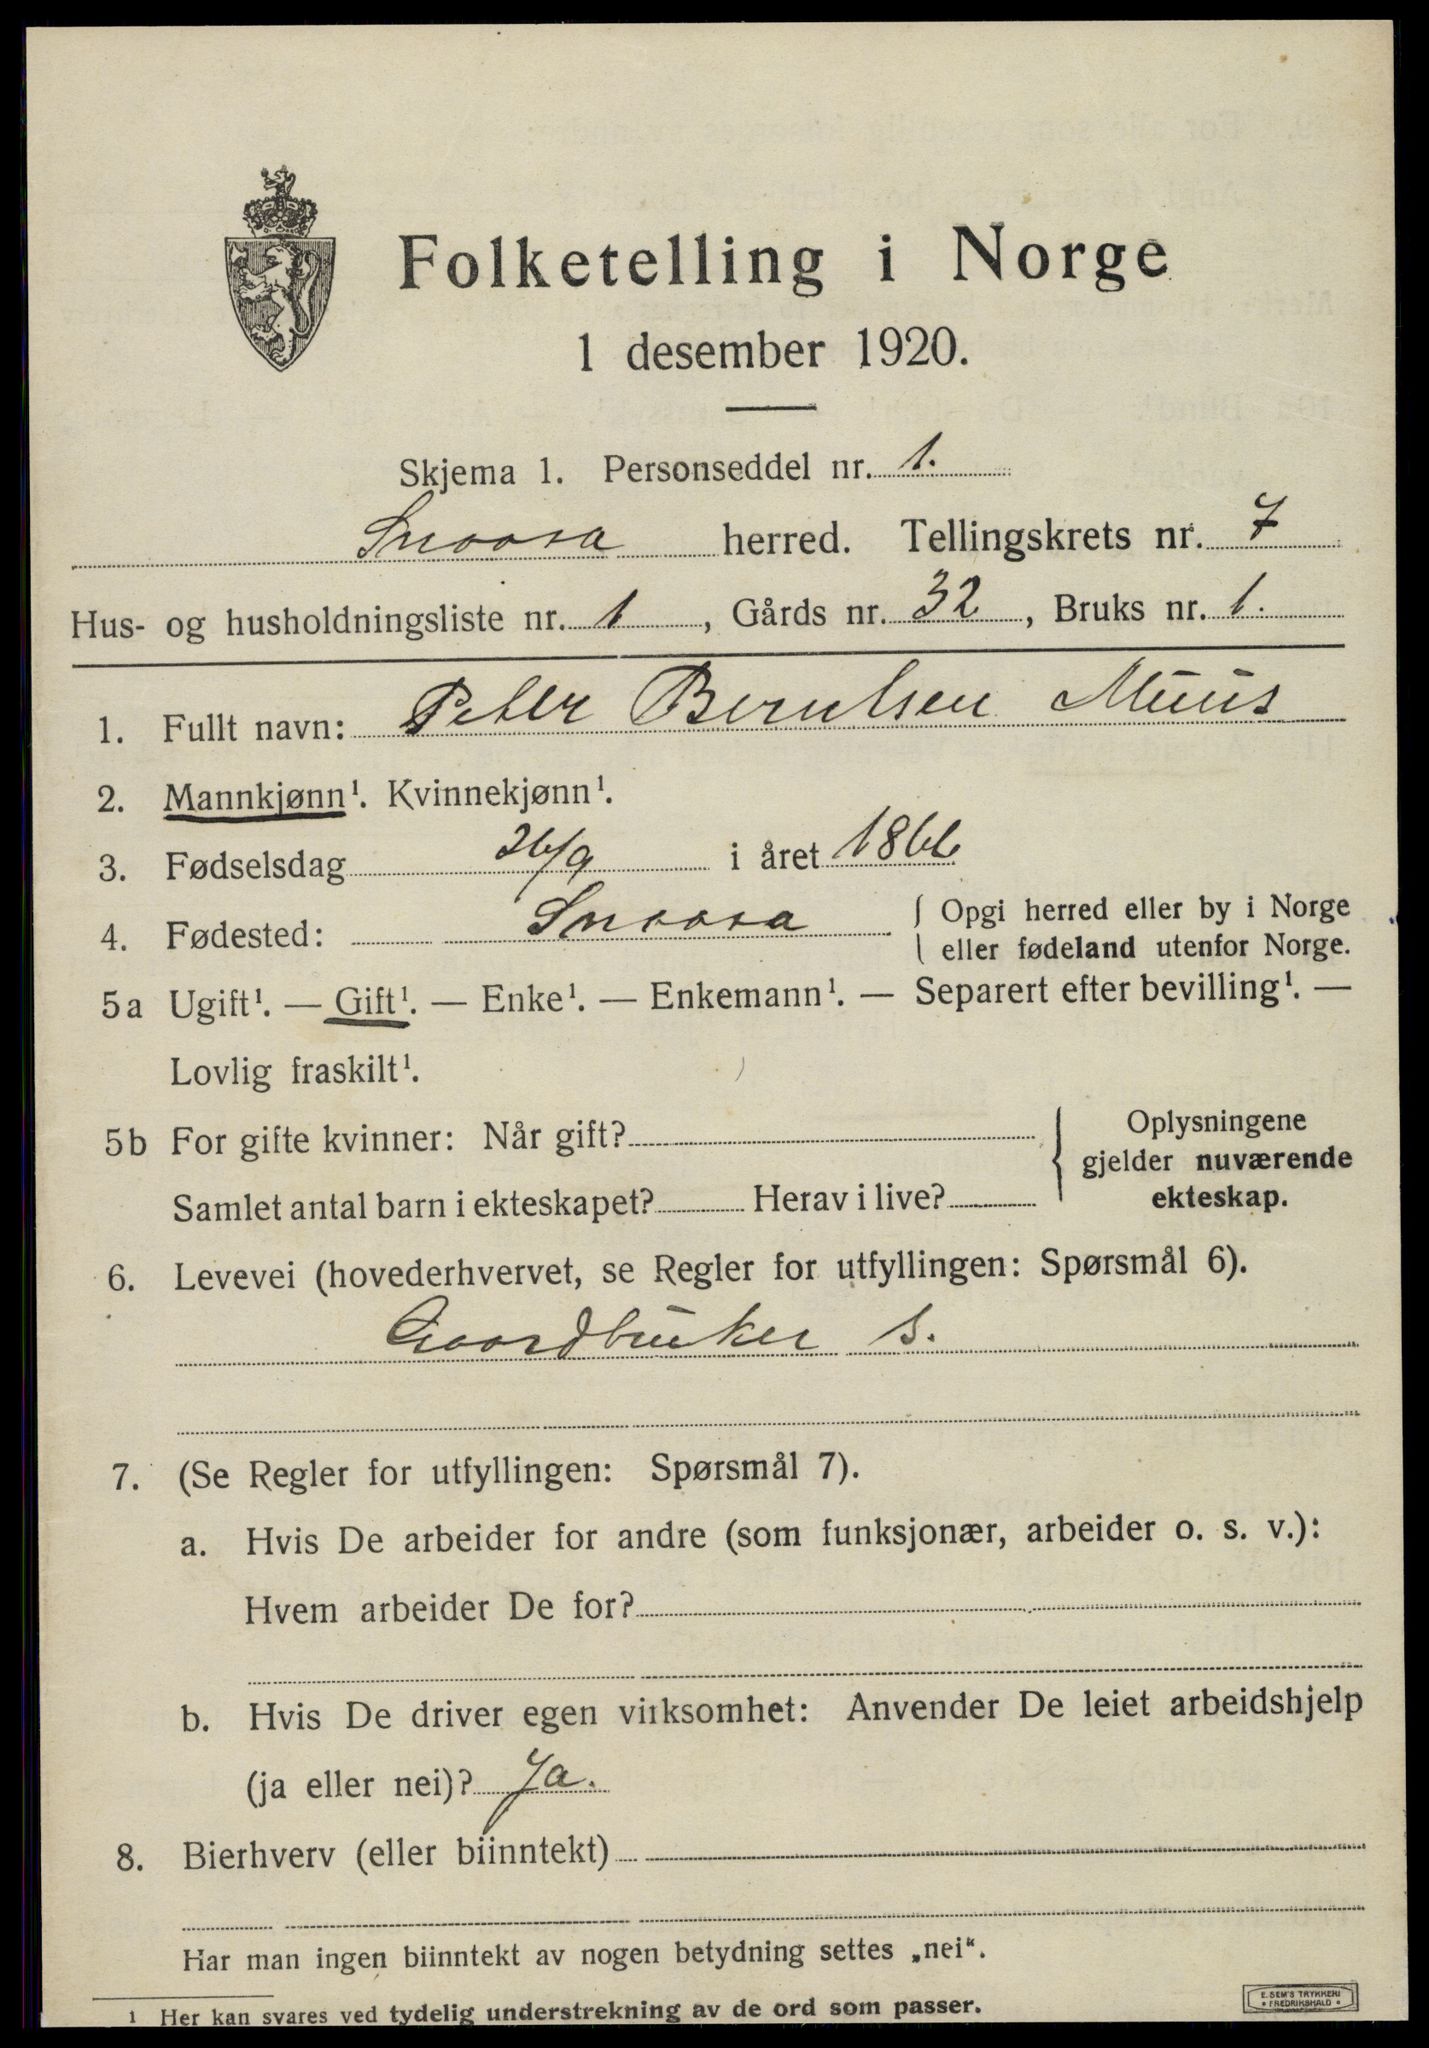 Folketelling i Norge
1 desember 1920.
Skjema 1. Personseddel nr. 1.
Snaasa herred. Tellingskrets nr. 7
Hus- og husholdningsliste nr. 1, Gårds nr. 32, Bruks nr. 1.
1. Fullt navn: Peter Berntsen Muus
2. Mannkjønn¹. Kvinnekjønn¹.
3. Fødselsdag 26/9 i året 1866
4. Fødested: Snaasa { Opgi herred eller by i Norge
eller fødeland utenfor Norge.
5a Ugift¹. — Gift¹. — Enke¹. — Enkemann¹. — Separert efter bevilling¹. —
Lovlig fraskilt¹.
5b For gifte kvinner: Når gift?
Samlet antal barn i ekteskapet? Herav i live?
{ Oplysningene
gjelder nuværende
ekteskap.
6. Levevei (hovederhvervet, se Regler for utfyllingen: Spørsmål 6).
Gaardbruker s.
7. (Se Regler for utfyllingen: Spørsmål 7).
a. Hvis De arbeider for andre (som funksjonær, arbeider o. s. v.):
Hvem arbeider De for?
b. Hvis De driver egen virksomhet: Anvender De leiet arbeidshjelp
(ja eller nei)? Ja.
8. Bierhverv (eller biinntekt)
Har man ingen biinntekt av nogen betydning settes „nei“.
1 Her kan svares ved tydelig understrekning av de ord som passer.
E. SEM'S TRYKKERI
• FREDRIKSHALD •